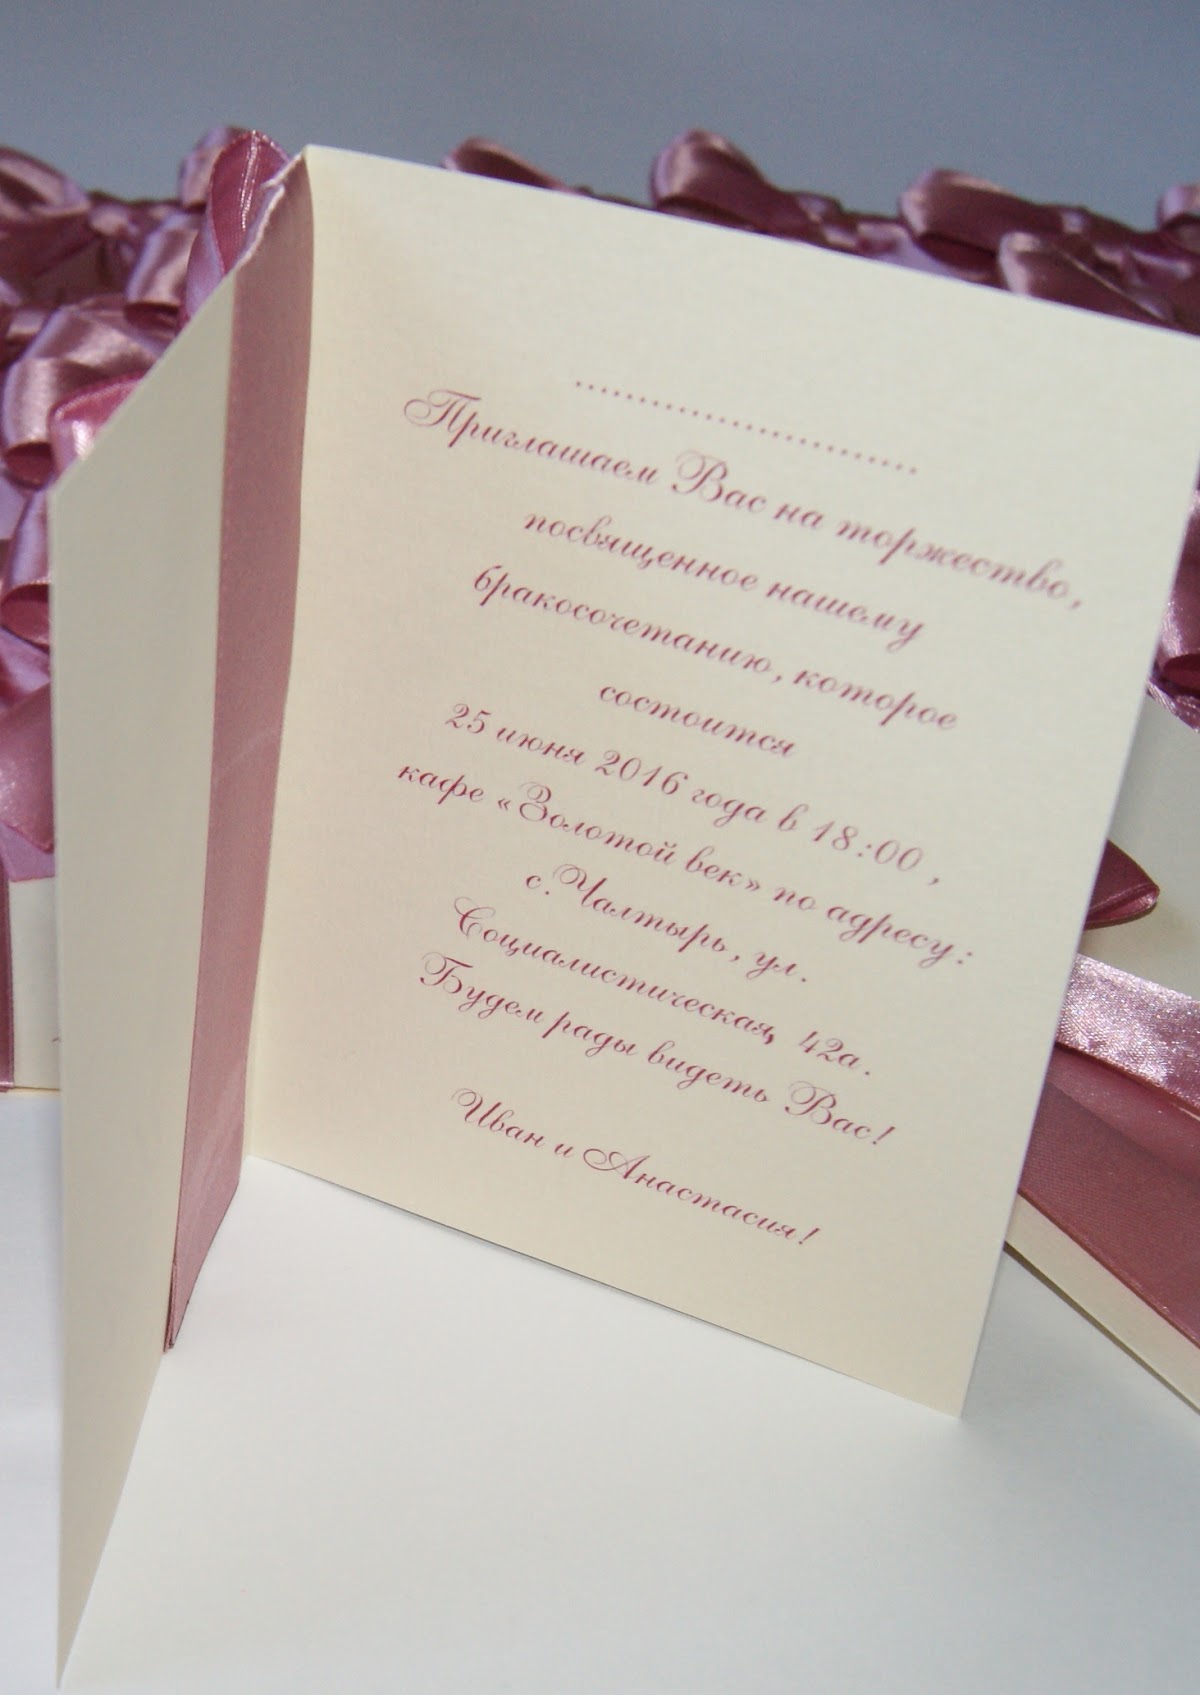 ..............................
Приглашаем Вас на торжество,
посвященное нашему
бракосочетанию, которое
состоится
25 июня 2016 года в 18:00 ,
кафе «Золотой век» по адресу:
с.Чалтырь, ул.
Социалистическая, 42а.
Будем рады видеть Вас!
Иван и Анастасия!